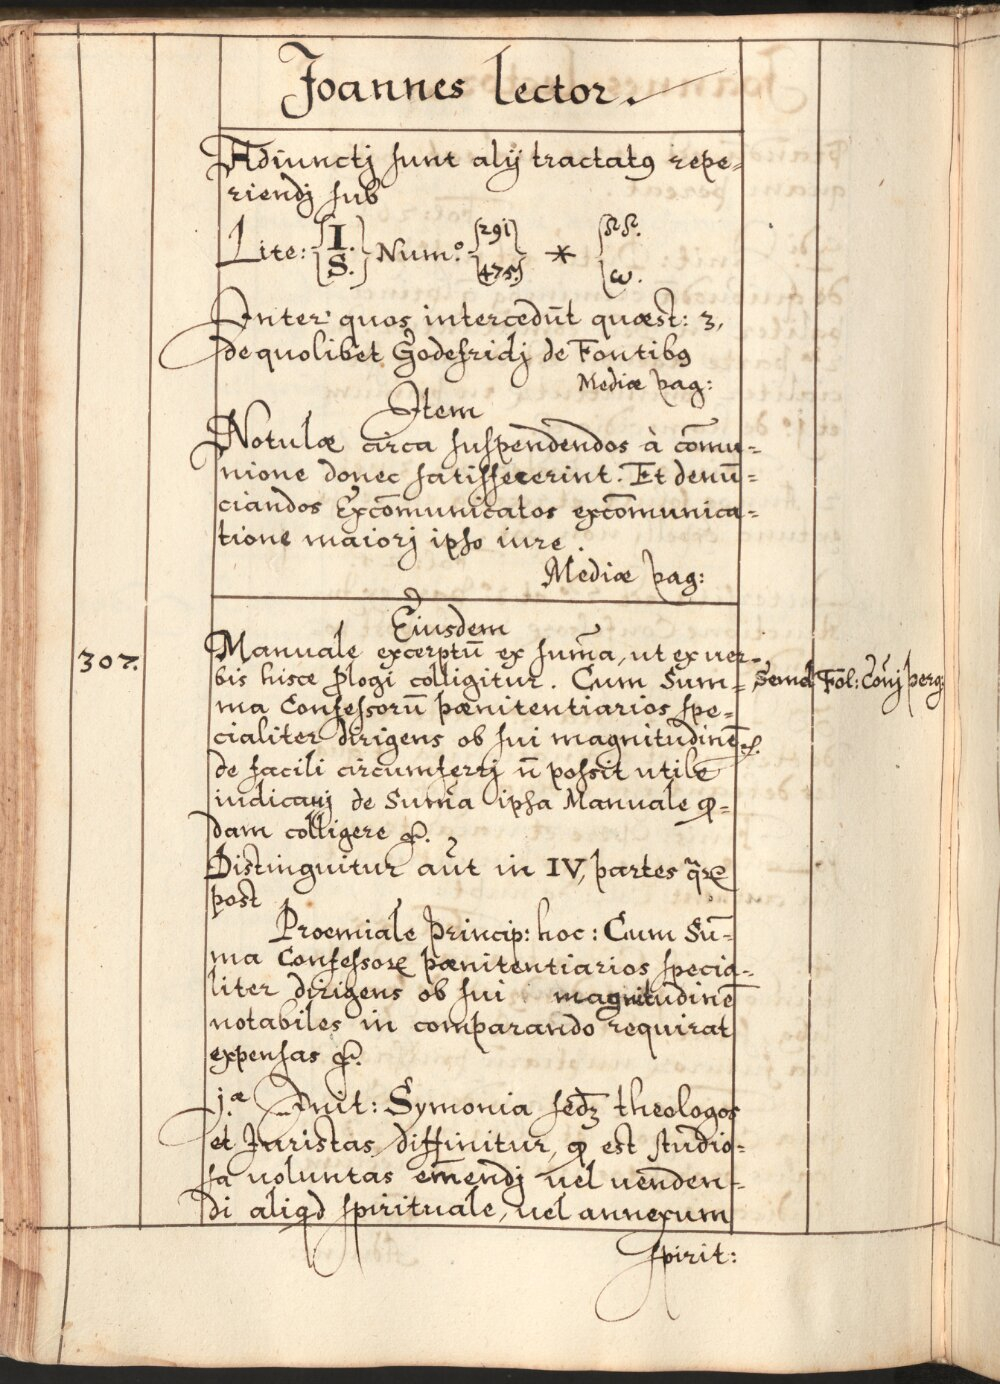 Joannes lector.
Adiunctj sunt alij tractatꝰ repe=
riendj sub
Lite: { I. S. } Num.º { 291 475. } * { ββ. ω.
Inter quos intercedūt quæst: 3,
de quolibet Godefridj de Fontibꝰ
Mediæ pag:
Item
Notulæ circa suspendendos à cōmu=
nione donec satisfecerint. Et denū=
ciandos Excōmunicatos excōmunica=
tione maiorj ipso iure.
Mediæ pag:
Eiusdem
307. Manuale excerptū ex sum̄a, ut ex ver=
bis hisce ꝓlogi colligitur. Cum Sum= Semel Fol: Cōuj perg:
ma Confessorū pænitentiarios spe=
cialiter dirigens ob sui magnitudinē
de facili circumferrj ñ possit utile
iudicauj de Sum̄a ipsa Manuale q̄=
dam colligere &.
Distinguitur aūt in IV, partes q̄rꝝ
post
Proemiale princip: hoc: Cum Sū=
ma Confessorꝝ pænitentiarios specia=
liter dirigens ob sui magnitudinē
notabiles in comparando requirat
expensas &.
j.æ Init: Symonia sedꝫ theologos
et Juristas diffinitur, ꝙ est studio=
sa uoluntas em̄endj uel uenden=
di aliqd spirituale, uel annexum
spirit: